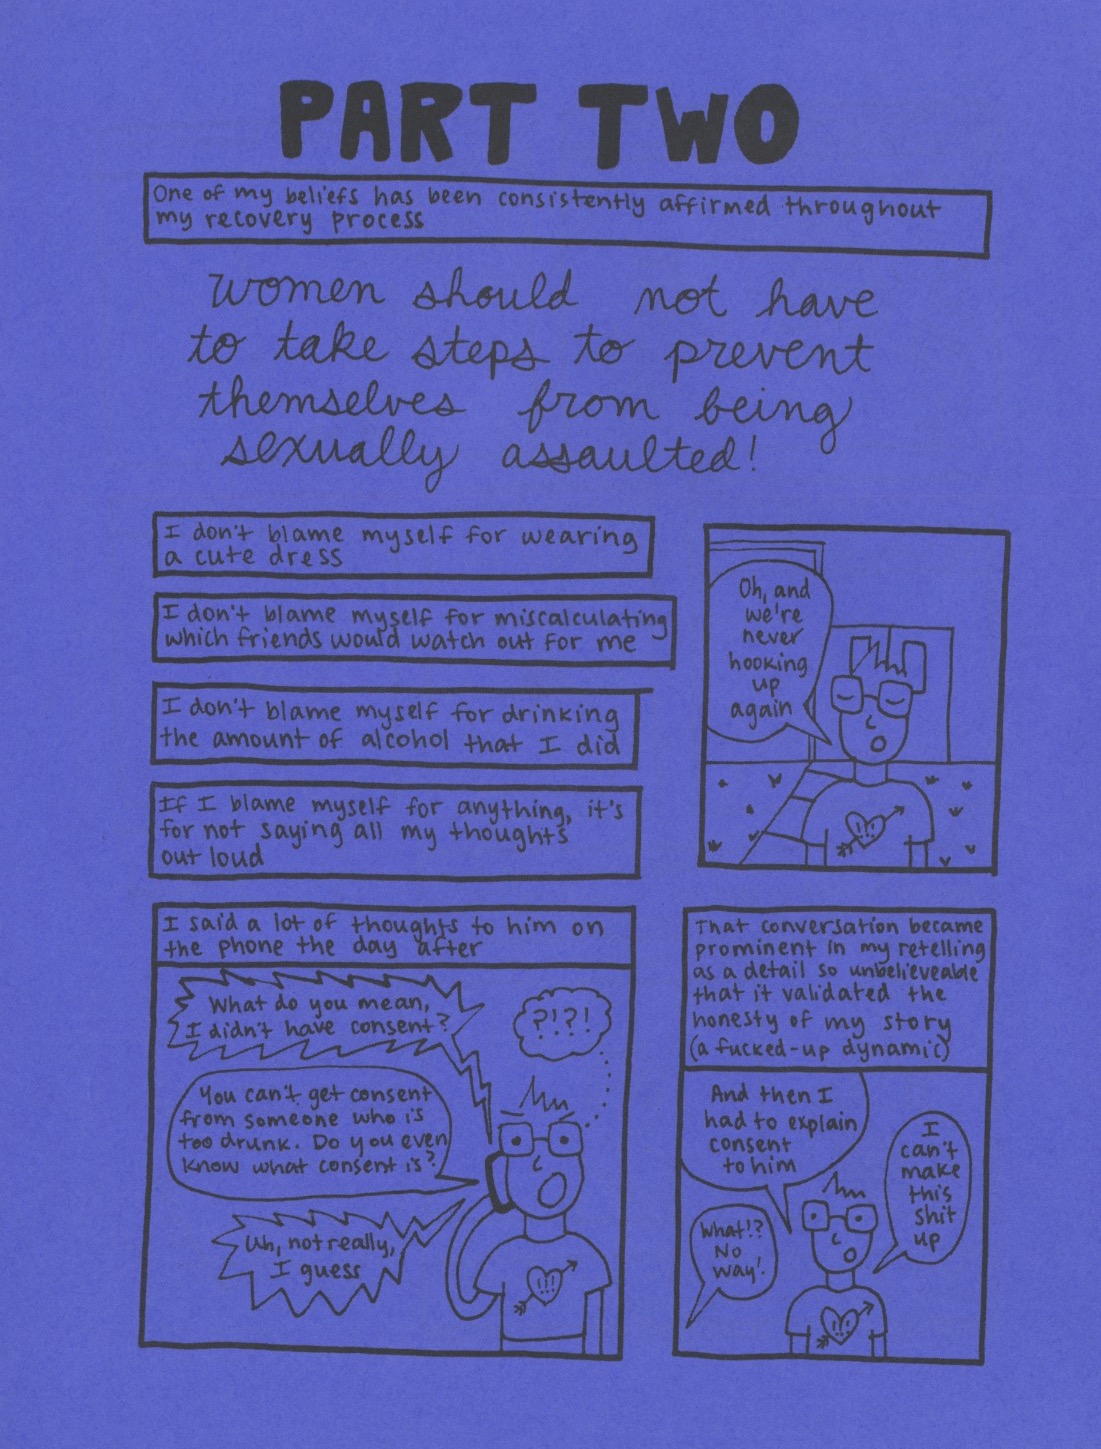 PART TWO
One of my beliefs has been consistently affirmed throughout
my recovery process
women should not have
to take steps to prevent
themselves from being
sexually assaulted!
I don't blame myself for wearing
a cute dress
I don't blame myself for miscalculating
which friends would watch out for me
I don't blame myself for drinking
the amount of alcohol that I did
If I blame myself for anything, it's
for not saying all my thoughts
out loud
Oh, and
we're
never
hooking
up
again
I said a lot of thoughts to him on
the phone the day after
What do you mean,
I didn't have consent?
?!?!
You can't get consent
from someone who is
too drunk. Do you even
know what consent is?
Uh, not really,
I guess
!!!
That conversation became
prominent in my retelling
as a detail so unbelieveable
that it validated the
honesty of my story
(a fucked-up dynamic)
And then I
had to explain
consent
to him
I
can't
make
this
shit
up
What!?
No
way!